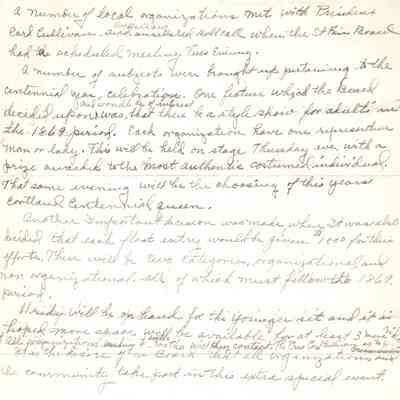 A number of local organizations met with President
Carl Cullivan and answered roll call when the St Fair Board
had the scheduled meeting Tues Evening.
A number of subjects were brought up pertaining to the
centennial year, celebration. One feature which the Board
and would be of interest
decided upon was that there be a style show for adults in
the 1869 period. Each organization have one representative
man or lady. This will be held on stage Thursday eve with a
prize awarded to the most authentic costumed individual.
That same evening will be the choosing of this years
Cortland Centennial queen.
Another Important decision was made when It was
decided that each float entry would be given $1000 for their
efforts. There will be two categories, organizational and
non organizational. all of which must follow the 1869
period.
Rides will be on hand for the younger set and it is
hoped more space will be available for at least 3 more
All organizations wishing booths will contact
It is the desire of the Board that all organizations and
the community take part in this extra special event.